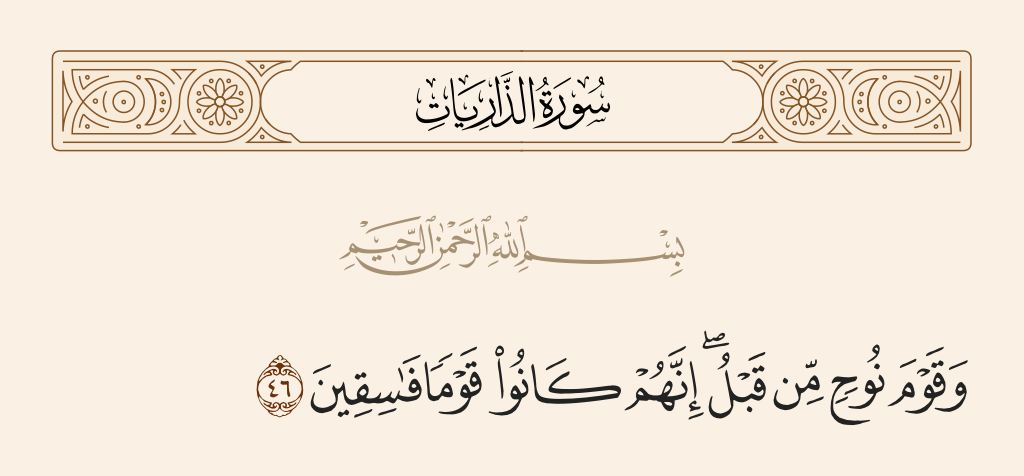 سُورَةُ الذَّارِيَاتِ
بِسْمِ ٱللَّهِ ٱلرَّحْمَٰنِ ٱلرَّحِيمِ
وَقَوْمَ نُوحٍ مِّن قَبْلُ ۖ إِنَّهُمْ كَانُوا۟ قَوْمًا فَـٰسِقِينَ ٤٦